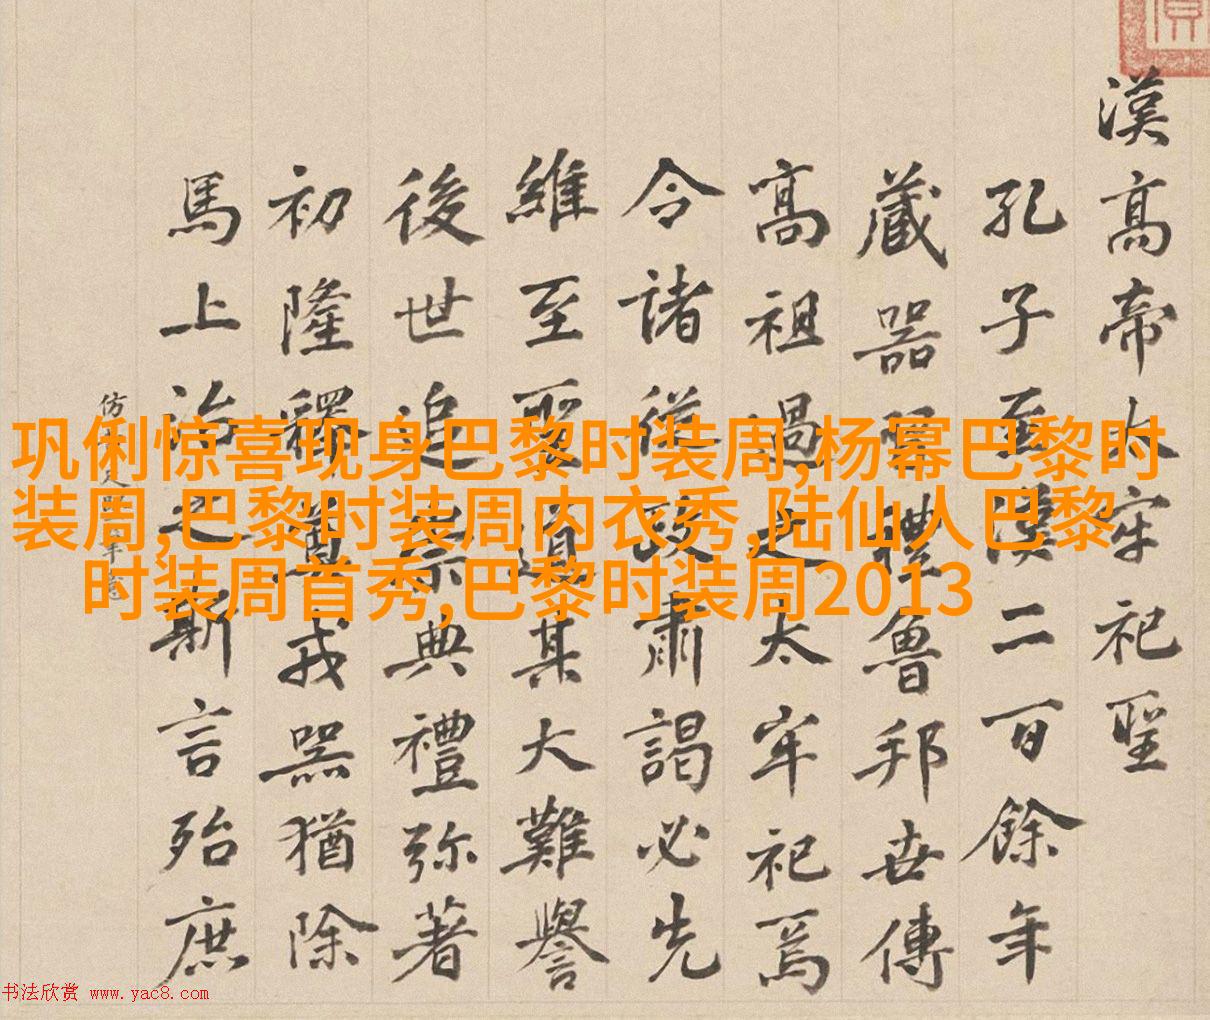 漢高帝太牢祀聖
孔子至漢二百餘年
藏器習禮魯邦世傳
高祖過之太牢祀焉
令諸従政肅謁必先
維至聖道其大難譽
後世追崇典禮弥著
初隆釋奠戎器猶除
馬上治之斯言殆庶
仿
巩俐惊喜现身巴黎时装周,杨幂巴黎时
装周,巴黎时装周内衣秀,陆仙人巴黎
时装周首秀,巴黎时装周2013
书法欣赏 www.yac8.com